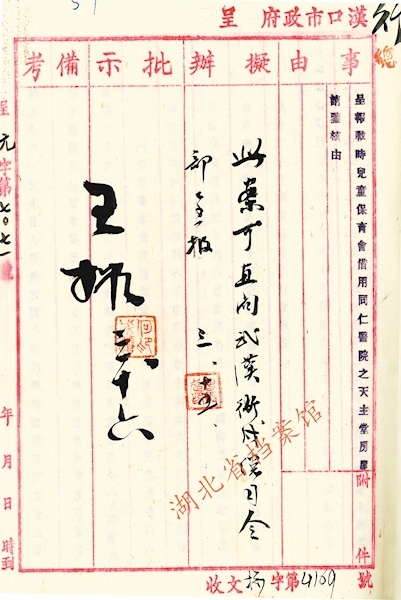 漢口市政府 呈
事由
擬辦
批示
備考
總
呈報戰時兒童保育會借用同仁醫院之天主堂房屋
請鑒核由
附件
此案可直向武漢衛戍總司令
部呈報 三、十五、
王
三、十六
呈元字第七〇七一號
年月日時到
收文揚字第4109號
湖北省档案馆